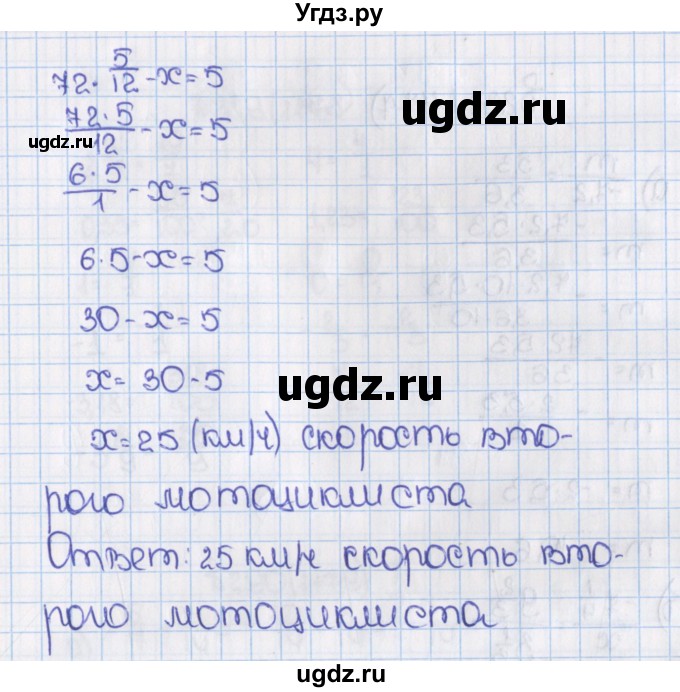 Угдз.ру
72 · 5/12 - x = 5
ugdz.ru
72·5/12 - x = 5
ugdz.ru
6·5/1 - x = 5
6·5-x=5
30-x=5
ugdz.ru
x= 30-5
x=25 (км/ч) скорость вто-
рого мотоциклиста
Ответ: 25 км/ч скорость вто-
рого мотоциклиста
ugdz.ru